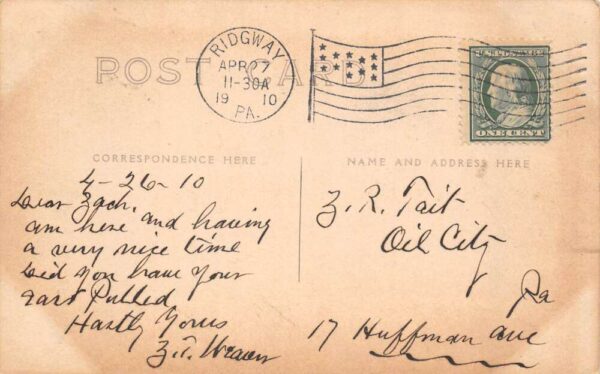 POST CARD
RIDGWAY
APR 27
11-30A
19 10
PA.
U.S. POSTAGE
ONE CENT
CORRESPONDENCE HERE
NAME AND ADDRESS HERE
4-26-10
Dear Zach.
am here and having
a very nice time
Did you have your
Pulled
Hastly Yours
Z.T.
Z. R. Tait
Oil City
Pa
17 Huffman ave